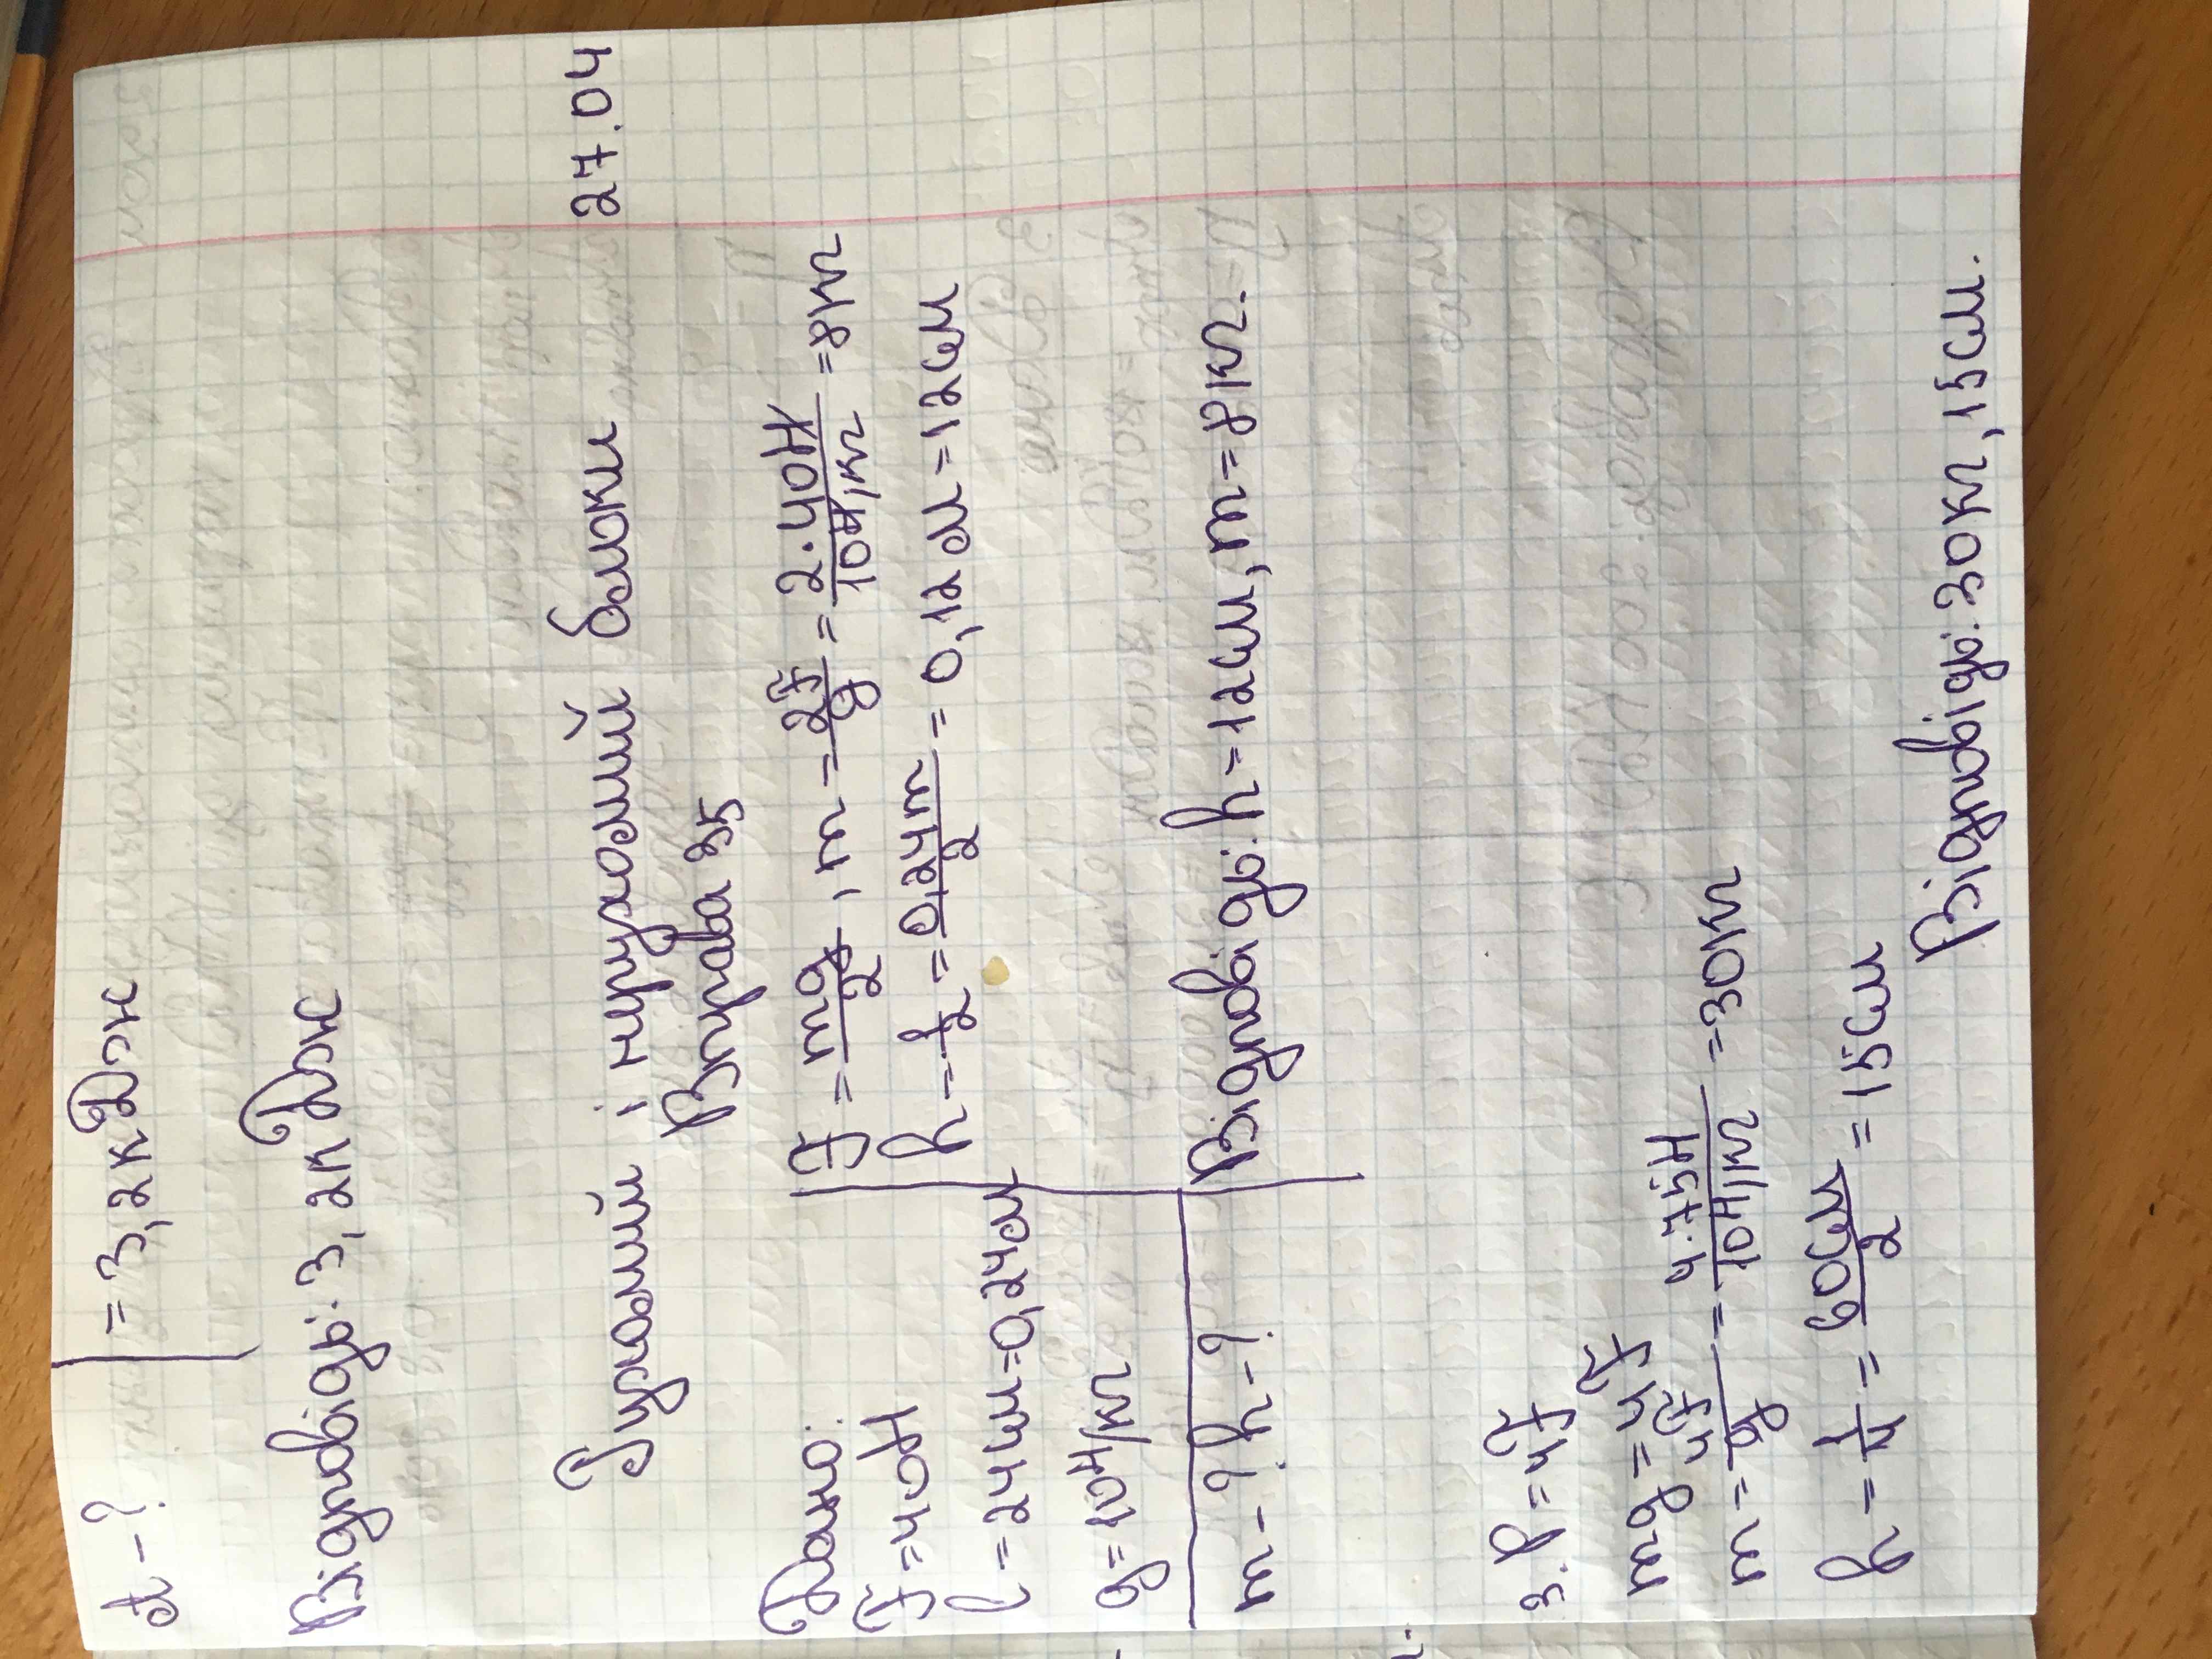 A - ? | = 3,2кДж
Відповідь: 3,2кДж
27.04
Рухомий і нерухомий блоки
Вправа 35
Дано:
F = 40Н
l = 24см = 0,24м
g = 10Н/кг
m - ? h - ?
F = mg/2, m = 2F/g = 2·40Н/10Н/кг = 8кг
h - l/2 = 0,24м/2 = 0,12м = 12см
Відповідь: h = 12см, m = 8кг.
3. P = 4F
mg = 4F
m = 4F/g = 4·75Н/10Н/кг = 30кг
h = l/4 = 60см/2 = 15см
Відповідь: 30кг, 15см.